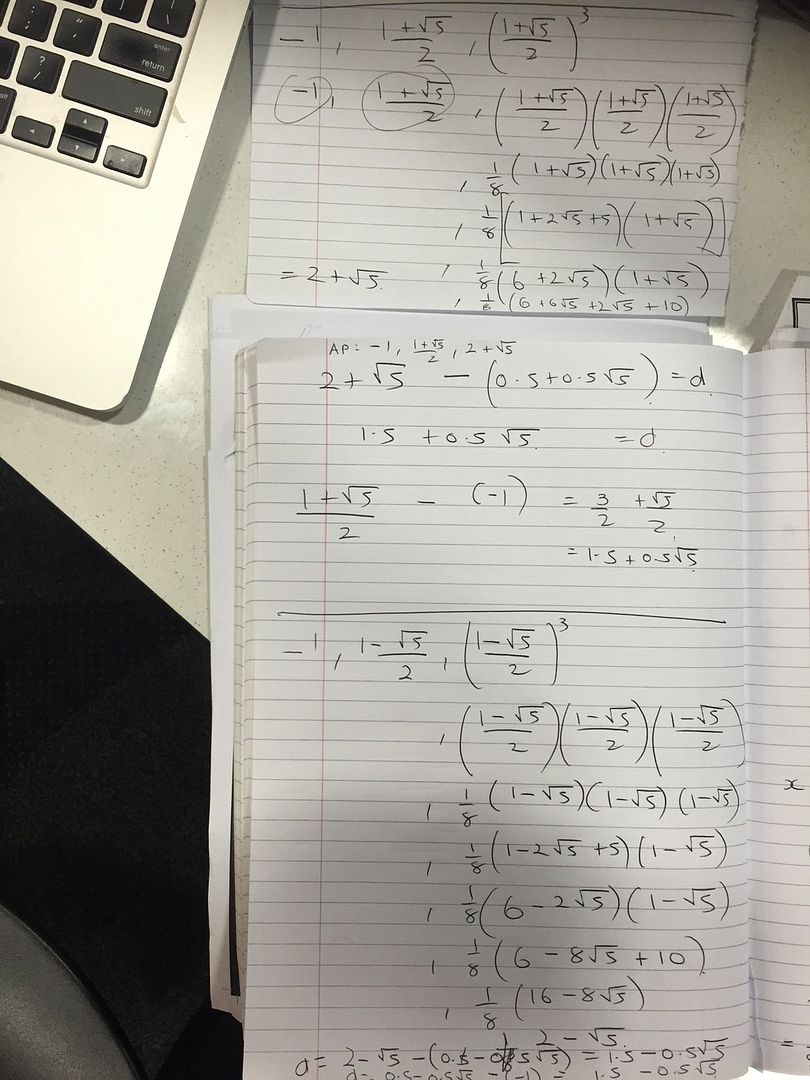 enter
return
?
/
shift
alt
-1, (1+√5)/2, ((1+√5)/2)³
-1, (1+√5)/2, ((1+√5)/2)((1+√5)/2)((1+√5)/2)
, 1/8 (1+√5)(1+√5)(1+√5)
, 1/8 [(1+2√5+5)(1+√5)]
= 2+√5 , 1/8 (6+2√5)(1+√5)
, 1/8 (6+6√5+2√5+10)
AP: -1, (1+√5)/2, 2+√5
2+√5 - (0.5+0.5√5) = d
1.5 + 0.5√5 = d
(1+√5)/2 - (-1) = 3/2 + √5/2
= 1.5+0.5√5
-1, (1-√5)/2, ((1-√5)/2)³
, ((1-√5)/2)((1-√5)/2)((1-√5)/2)
, 1/8 (1-√5)(1-√5)(1-√5)
x
, 1/8 (1-2√5+5)(1-√5)
, 1/8 (6-2√5)(1-√5)
, 1/8 (6-8√5+10)
, 1/8 (16-8√5)
, 2-√5
d= 2-√5-(0.5-0.5√5) = 1.5-0.5√5
d= 0.5-0.5√5-(-1) = 1.5-0.5√5
=